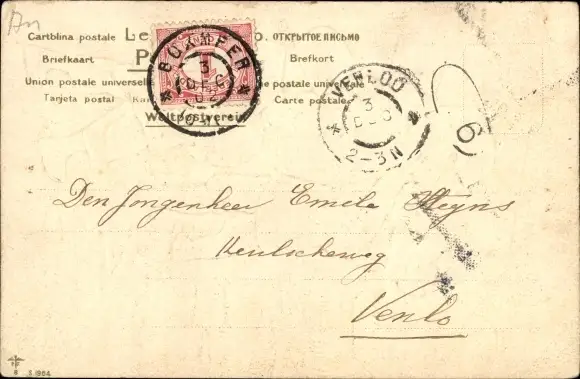 Cartolina postale Le o. ОТКРЫТОЕ ПИСЬМО
Briefkaart P Brefkort
Union postale universelle postale universale
Tarjeta postal Carte postale
Weltpostverein
BOXMEER
3 DEC
VENLOO
3 DEC
2-3N
6)
Den Jongenheer Emile Heyns
Keulscheweg
Venlo
S. 1964